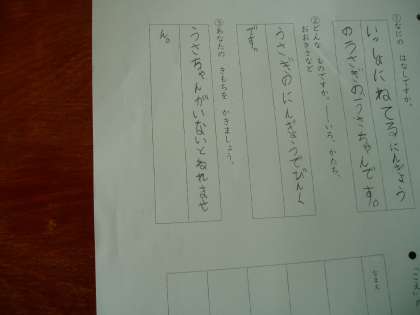 ①なにの はなしですか。
いっしょにねてるにんぎょう
のうさぎのうさちゃんです。
②どんな ものですか。――いろ、かたち、
おおきさなど
うさぎのにんぎょうでぴんく
です。
③あなたの きもちを かきましょう。
うさちゃんがいないとねれませ
ん。
なまえ